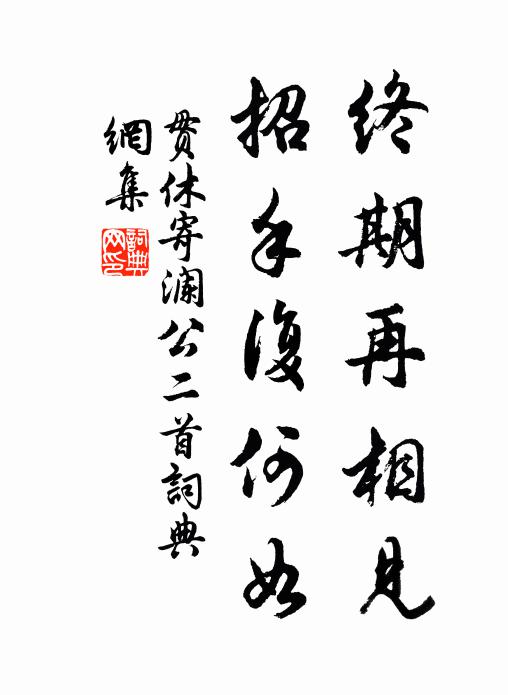 終期再相見
招手復何如
貫休寄澜公二首詞典
網集
詞典網印